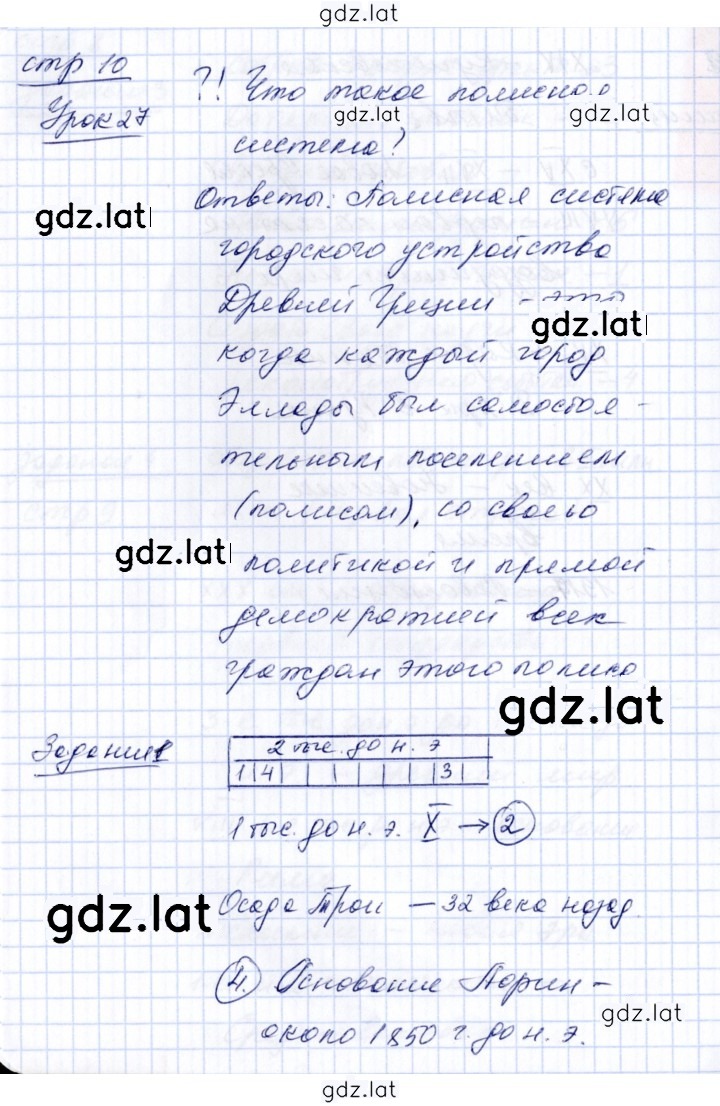 gdz.lat
стр 10
Урок 27
?! Что такое полисная
gdz.lat
gdz.lat
система?
Ответы: Полисная система
gdz.lat
городского устройства
Древней Греции - это
gdz.lat
когда каждый город
Эллады был самостоя-
тельным поселением
(полисом), со своею
gdz.lat
политикой и прямой
демократией всех
граждан этого полиса
gdz.lat
Задание 1
2 тыс. до н. э
1 4 3
1 тыс. до н. э. X → 2
Осада Трои — 32 века назад.
gdz.lat
4. Основание
gdz.lat
около 1850 г. до н. э.
gdz.lat